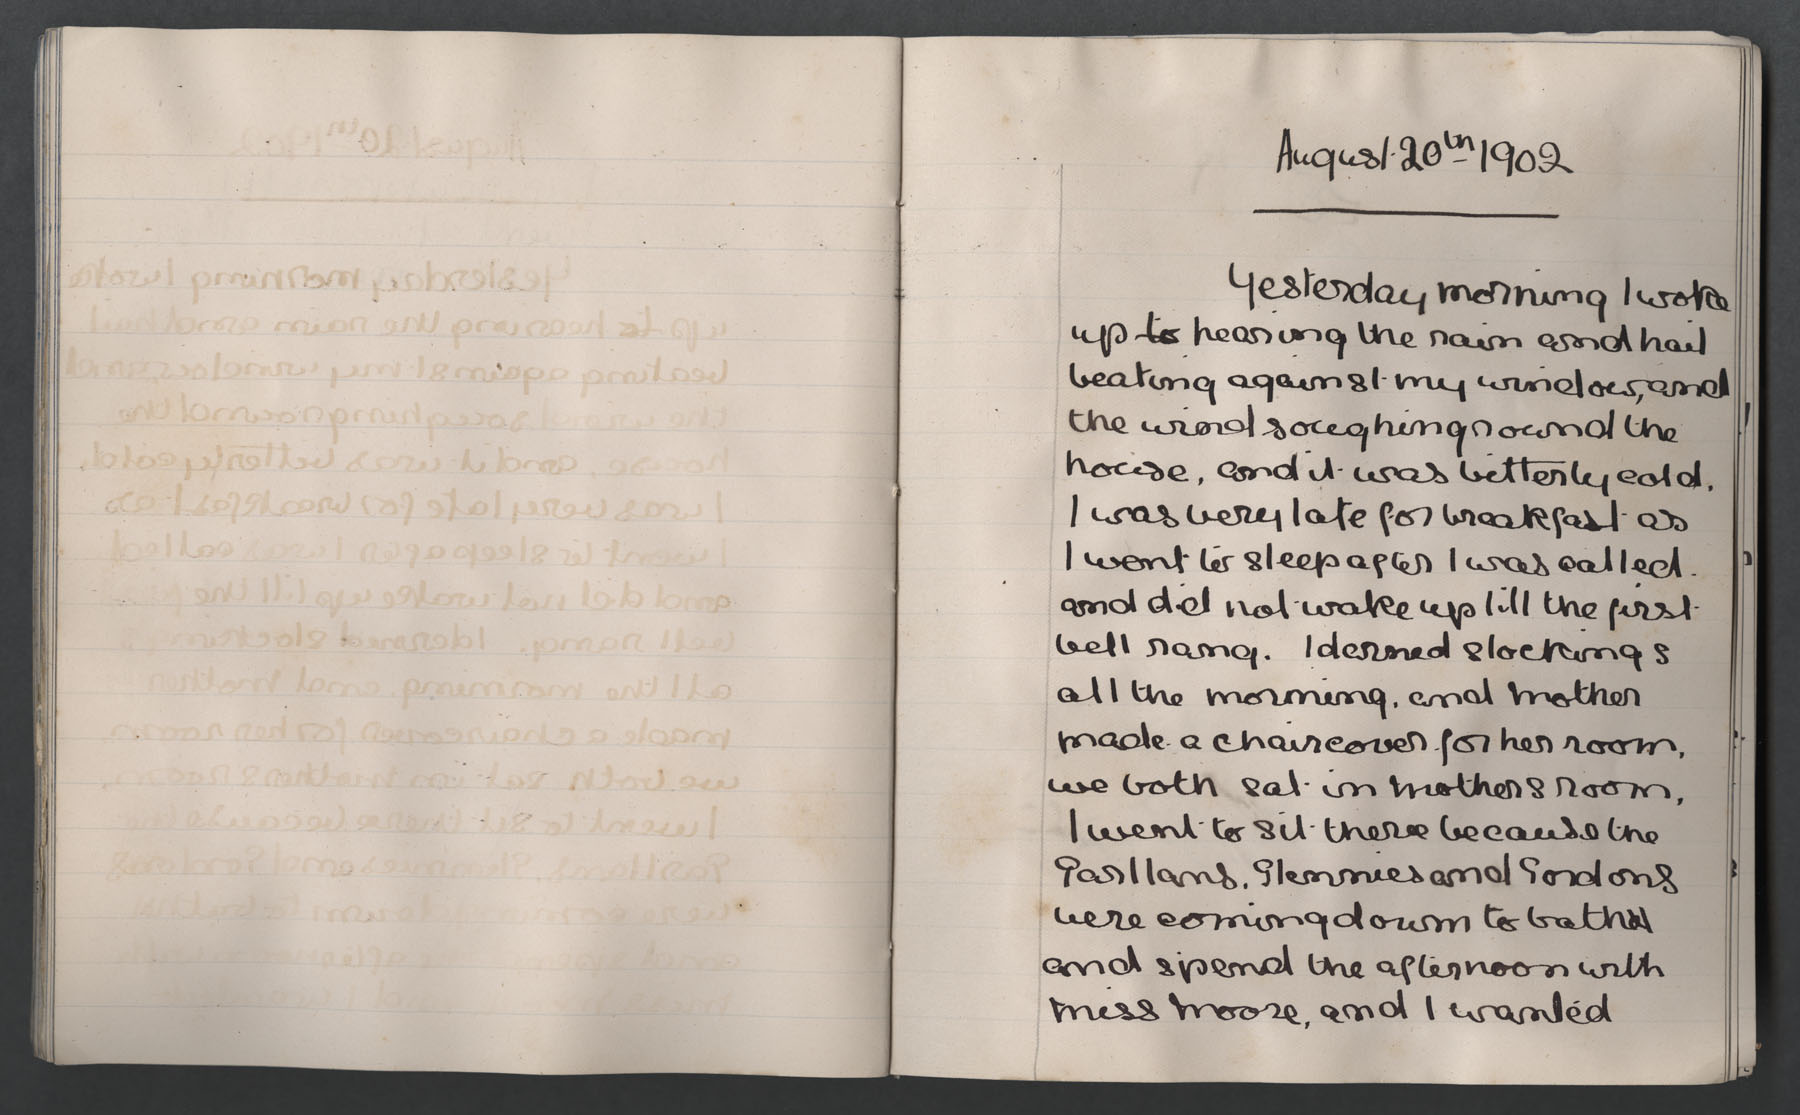 August 20th 1902
Yesterday morning I woke
up to hearing the rain and hail
beating against my window, and
the wind soughing round the
house, and it was bitterly cold.
I was very late for breakfast as
I went to sleep after I was called
and did not wake up till the first
bell rang. I derned stockings
all the morning, and Mother
made a chaircover for her room,
we both sat in Mothers room,
I went to sit there because the
Gasllans, Glennies and Gordons
were coming down to bathe
and spend the afternoon with
Miss Moore, and I wanted